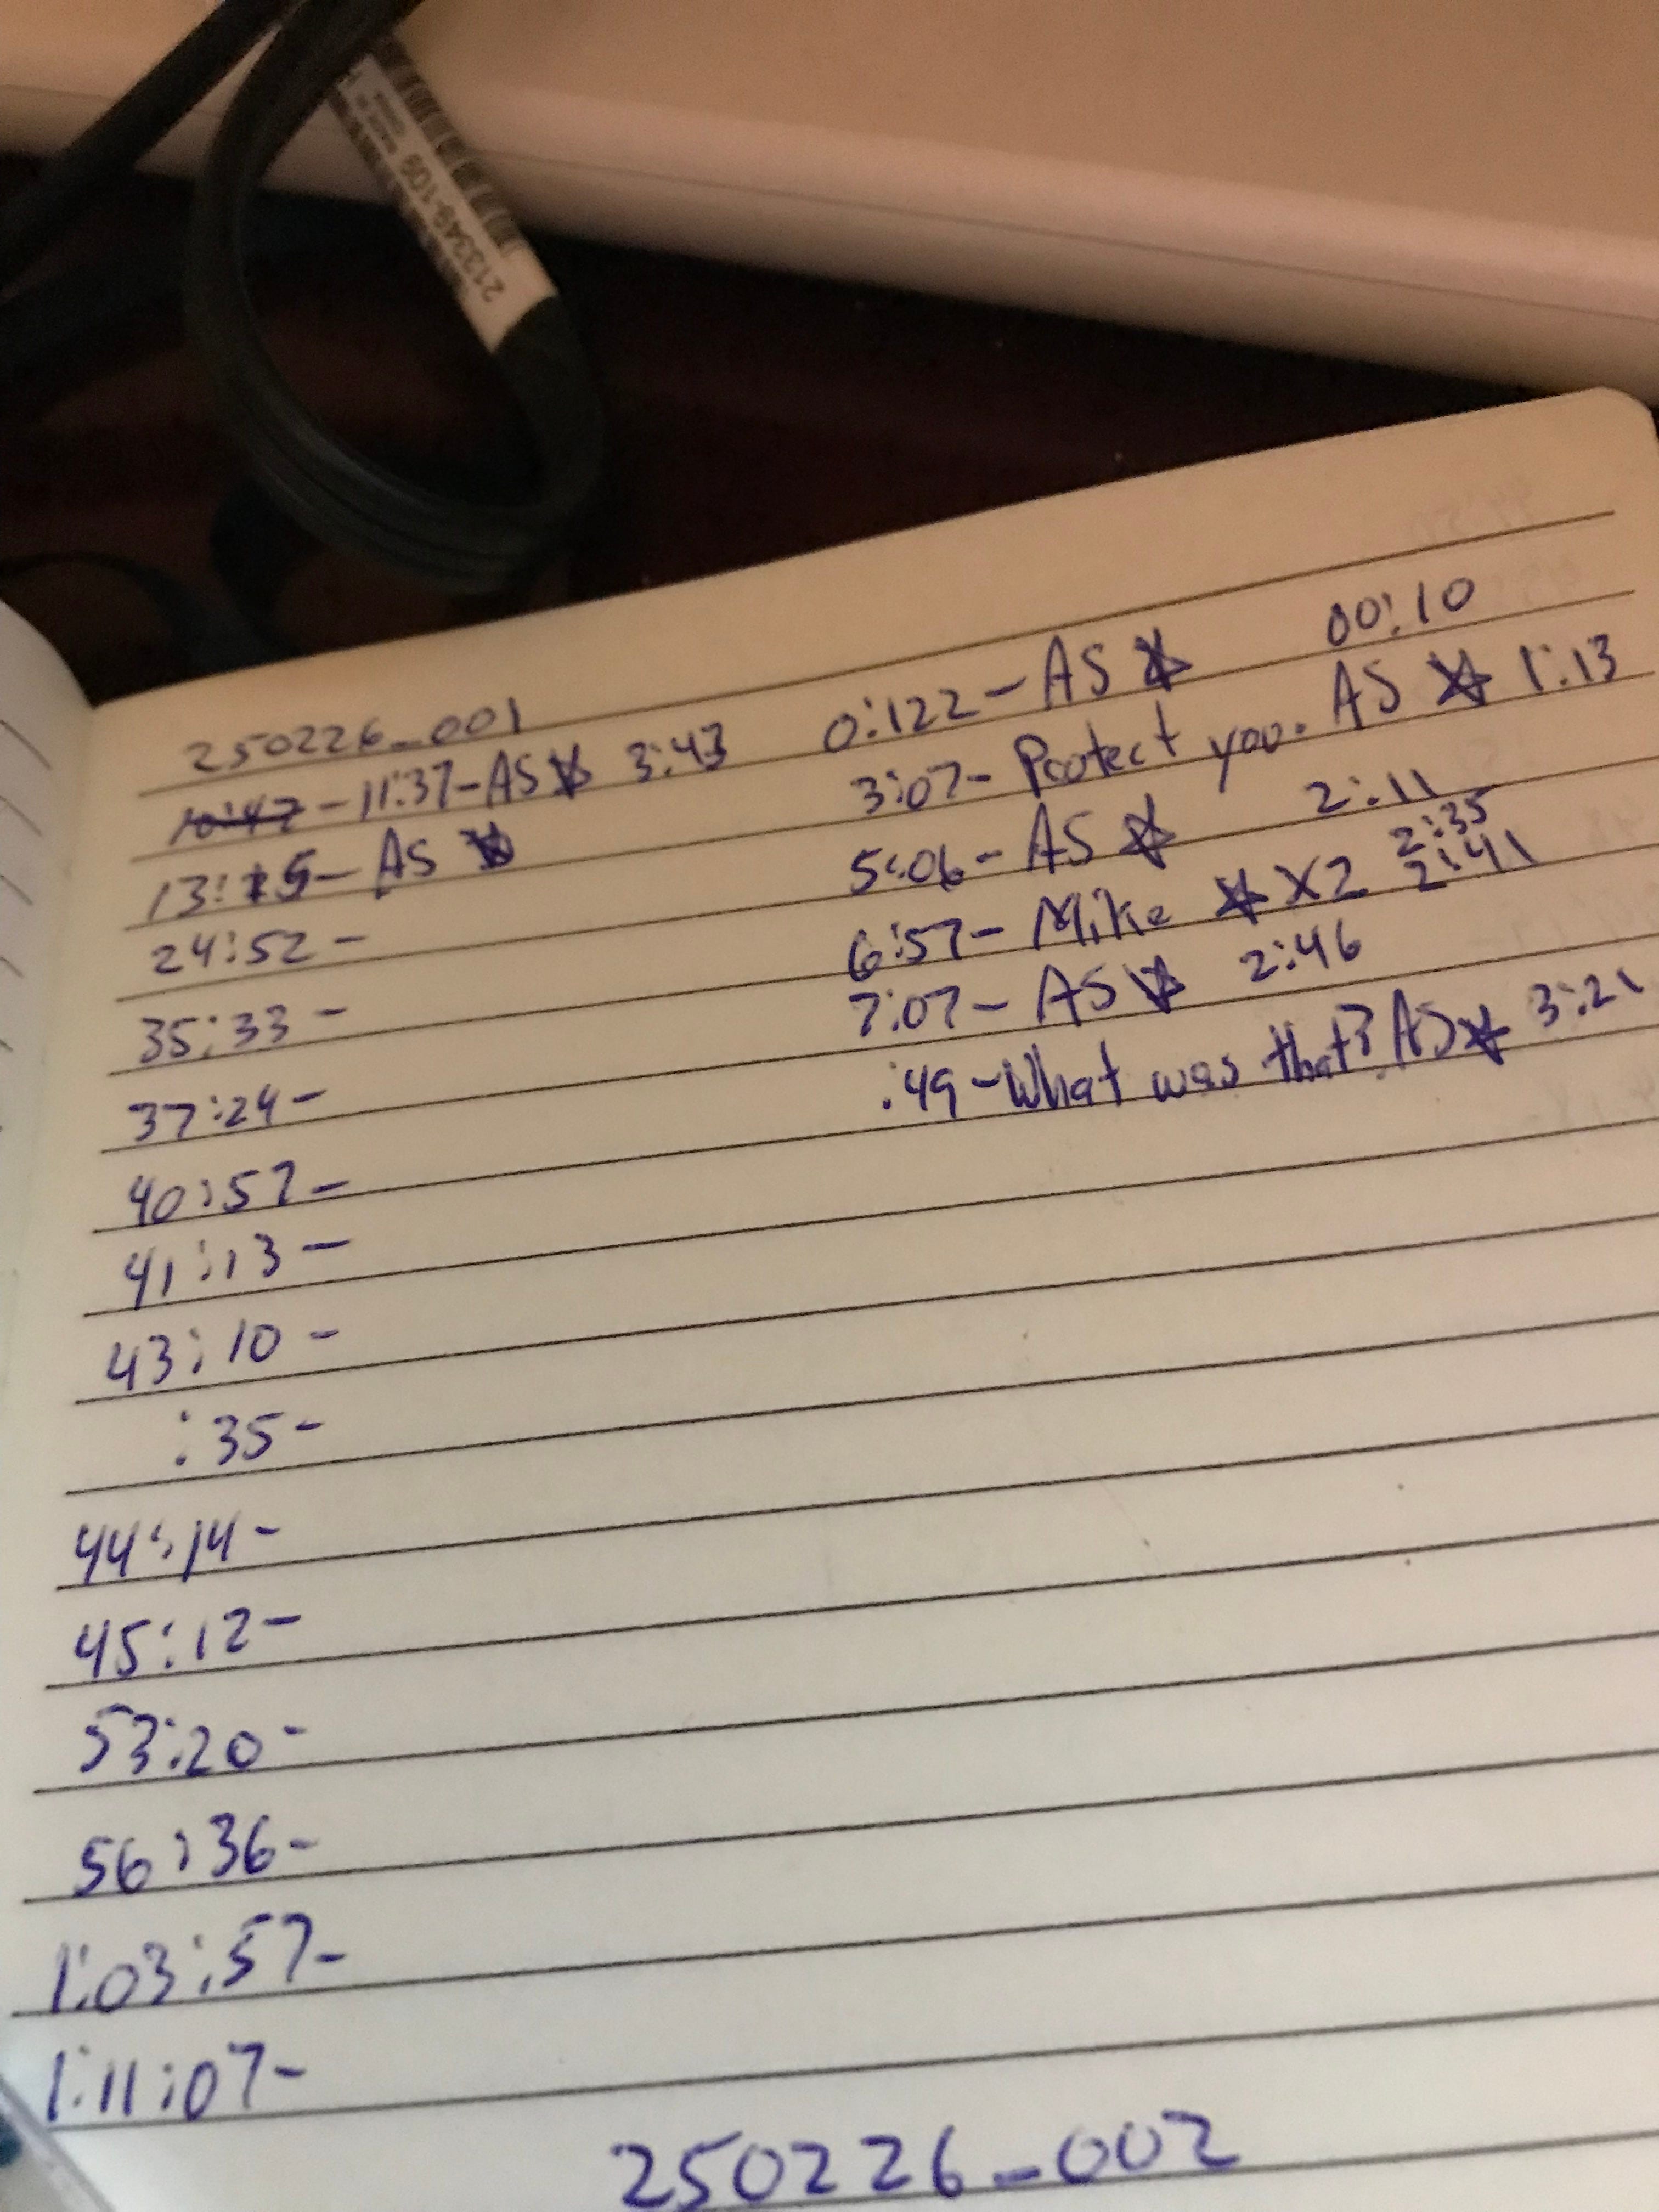 2133349-100
250226_001
10:47 - 11:37 - AS ☆ 3:43
13:15 - AS ☆
24:52 -
35:33 -
37:24 -
40:57 -
41:13 -
43:10 -
:35 -
44:14 -
45:12 -
53:20 -
56:36 -
1:03:57 -
1:11:07 -
0:122 - AS ☆ 00:10
3:07 - Protect you. AS ☆ 1:13
5:06 - AS ☆ 2:11
2:35
6:57 - Mike ☆ X2 2:41
7:07 - AS ☆ 2:46
:49 - What was that? AS ☆ 3:21
250226_002